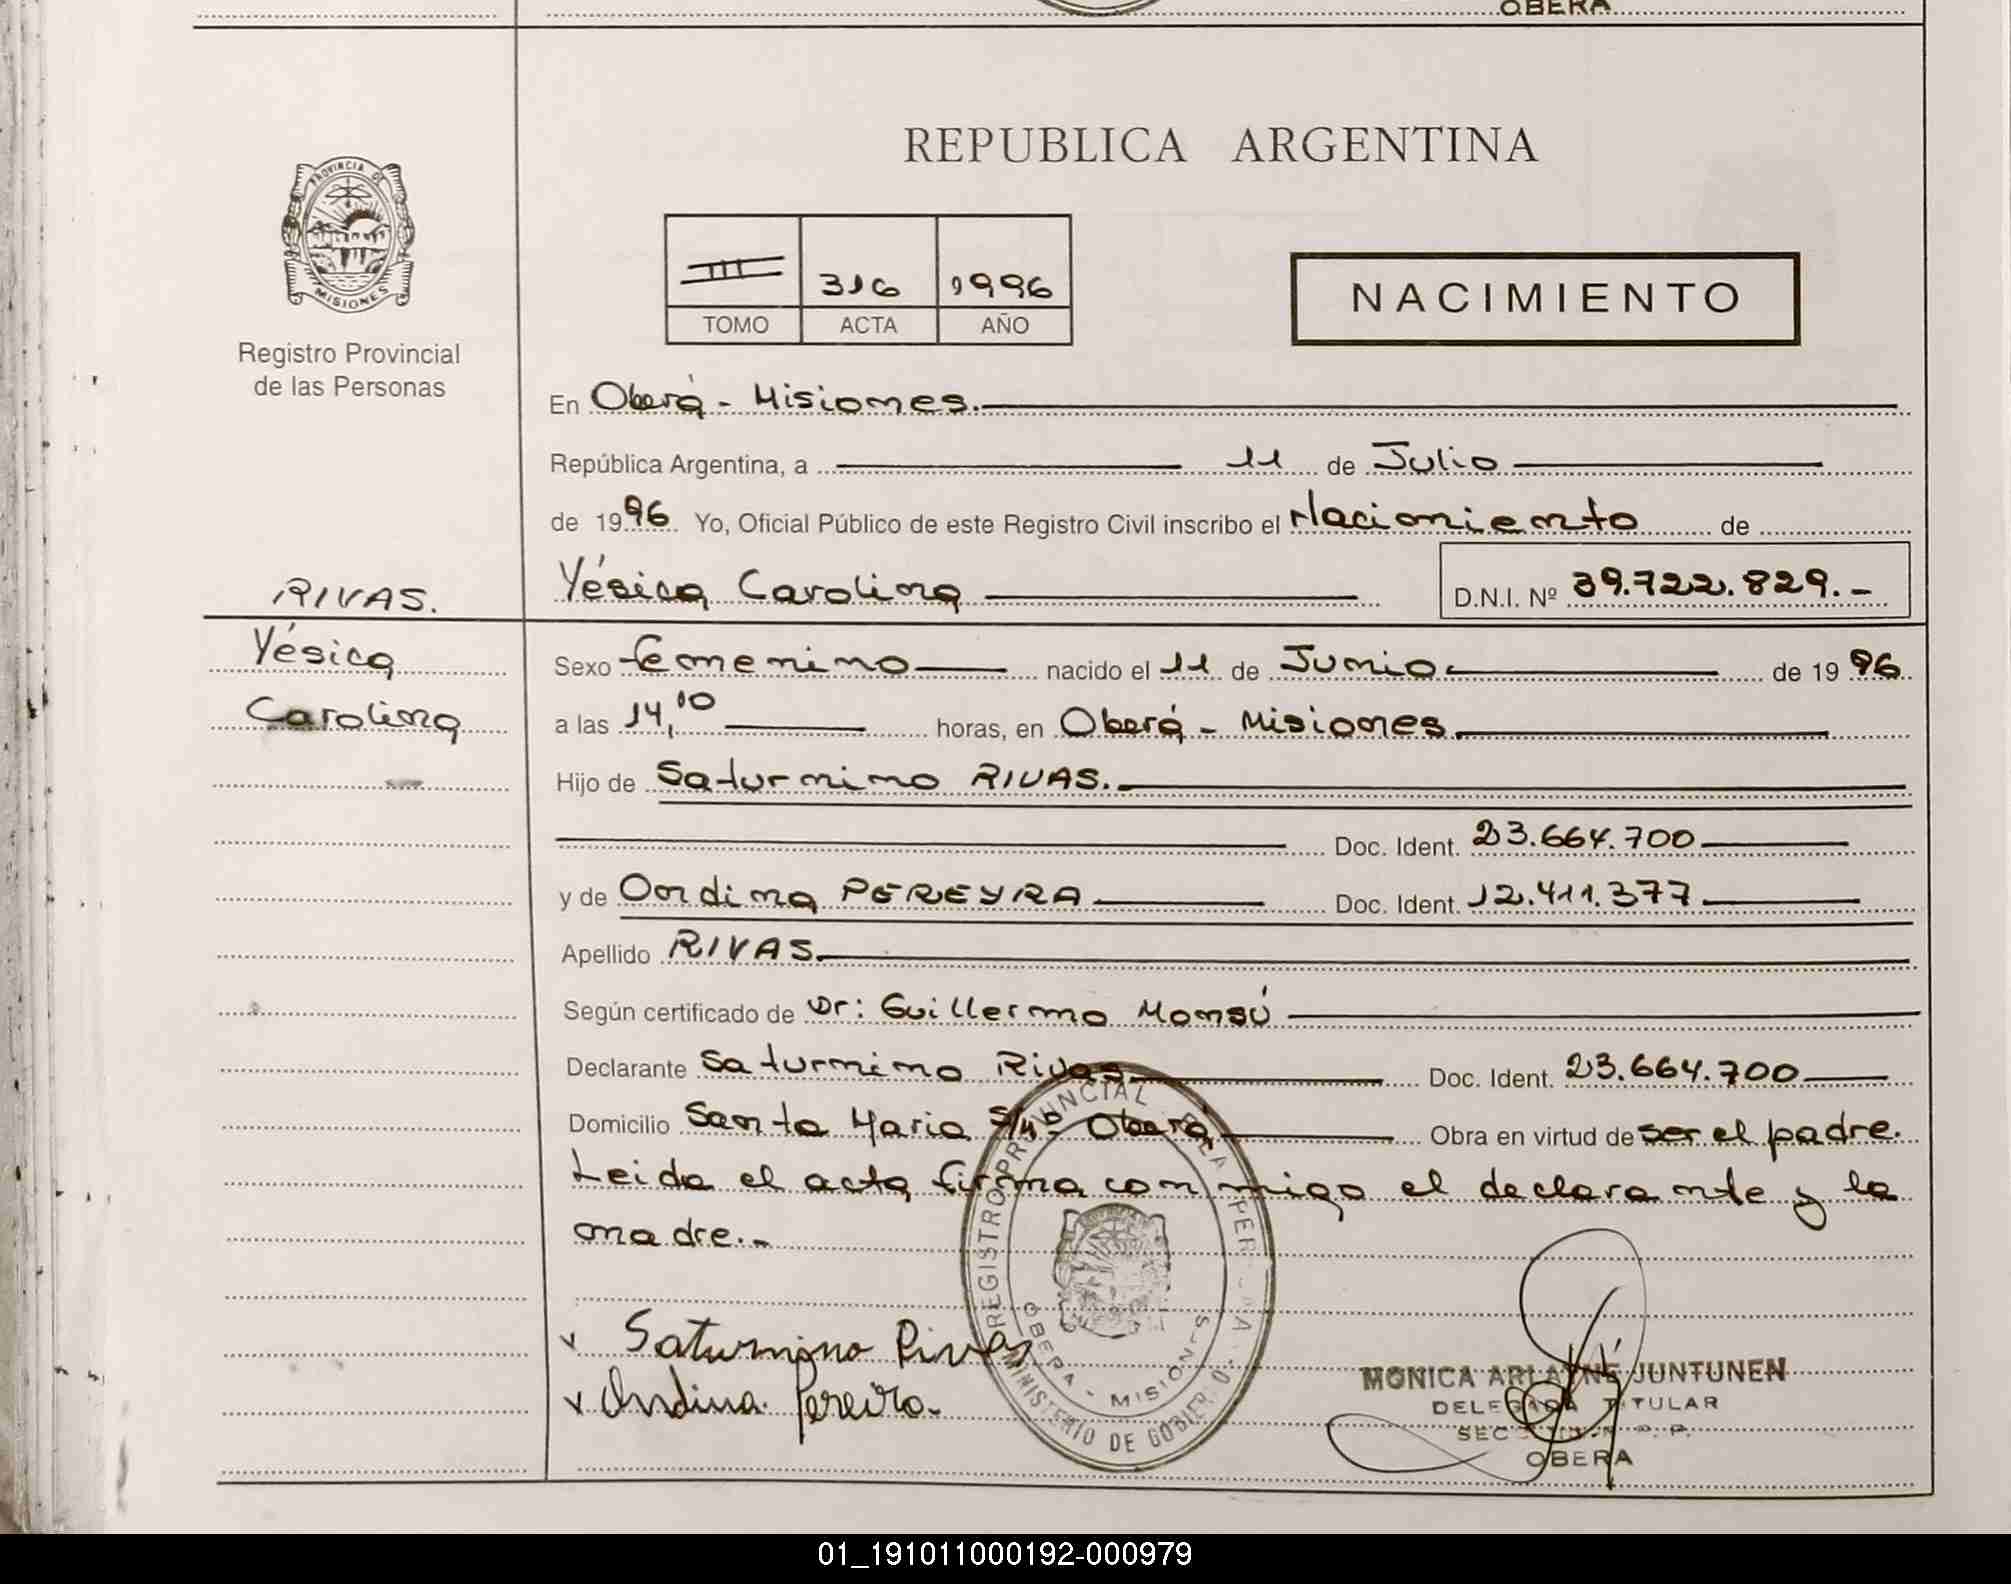 OBERA
REPUBLICA ARGENTINA
PROVINCIA DE
MISIONES
Registro Provincial
de las Personas
III 316 1996
TOMO ACTA AÑO
NACIMIENTO
En Oberá - Misiones.
República Argentina, a 11 de Julio
de 1996 Yo, Oficial Público de este Registro Civil inscribo el Nacimiento de
RIVAS.
Yésica Carolina D.N.I. Nº 39.722.829.-
Yésica
Carolina
Sexo femenino nacido el 11 de Junio de 1996
a las 14,10 horas, en Oberá - Misiones.
Hijo de Saturnino RIVAS.
Doc. Ident. 23.664.700
y de Ondina PEREYRA Doc. Ident. 12.411.377
Apellido RIVAS.
Según certificado de Dr: Guillermo Monsú
Declarante Saturnino Rivas Doc. Ident. 23.664.700
Domicilio Santa Maria S/Nº Oberá Obra en virtud de ser el padre.
Leida el acta firma conmigo el declarante y la
madre.-
REGISTRO PROVINCIAL DE LA PERSONA
OBERA - MISIONES
MINISTERIO DE GOBIERNO
x Saturnino Rivas
x Ondina Pereira.
MONICA ARLAYNE JUNTUNEN
DELEGADA TITULAR
OBERA
01_191011000192-000979